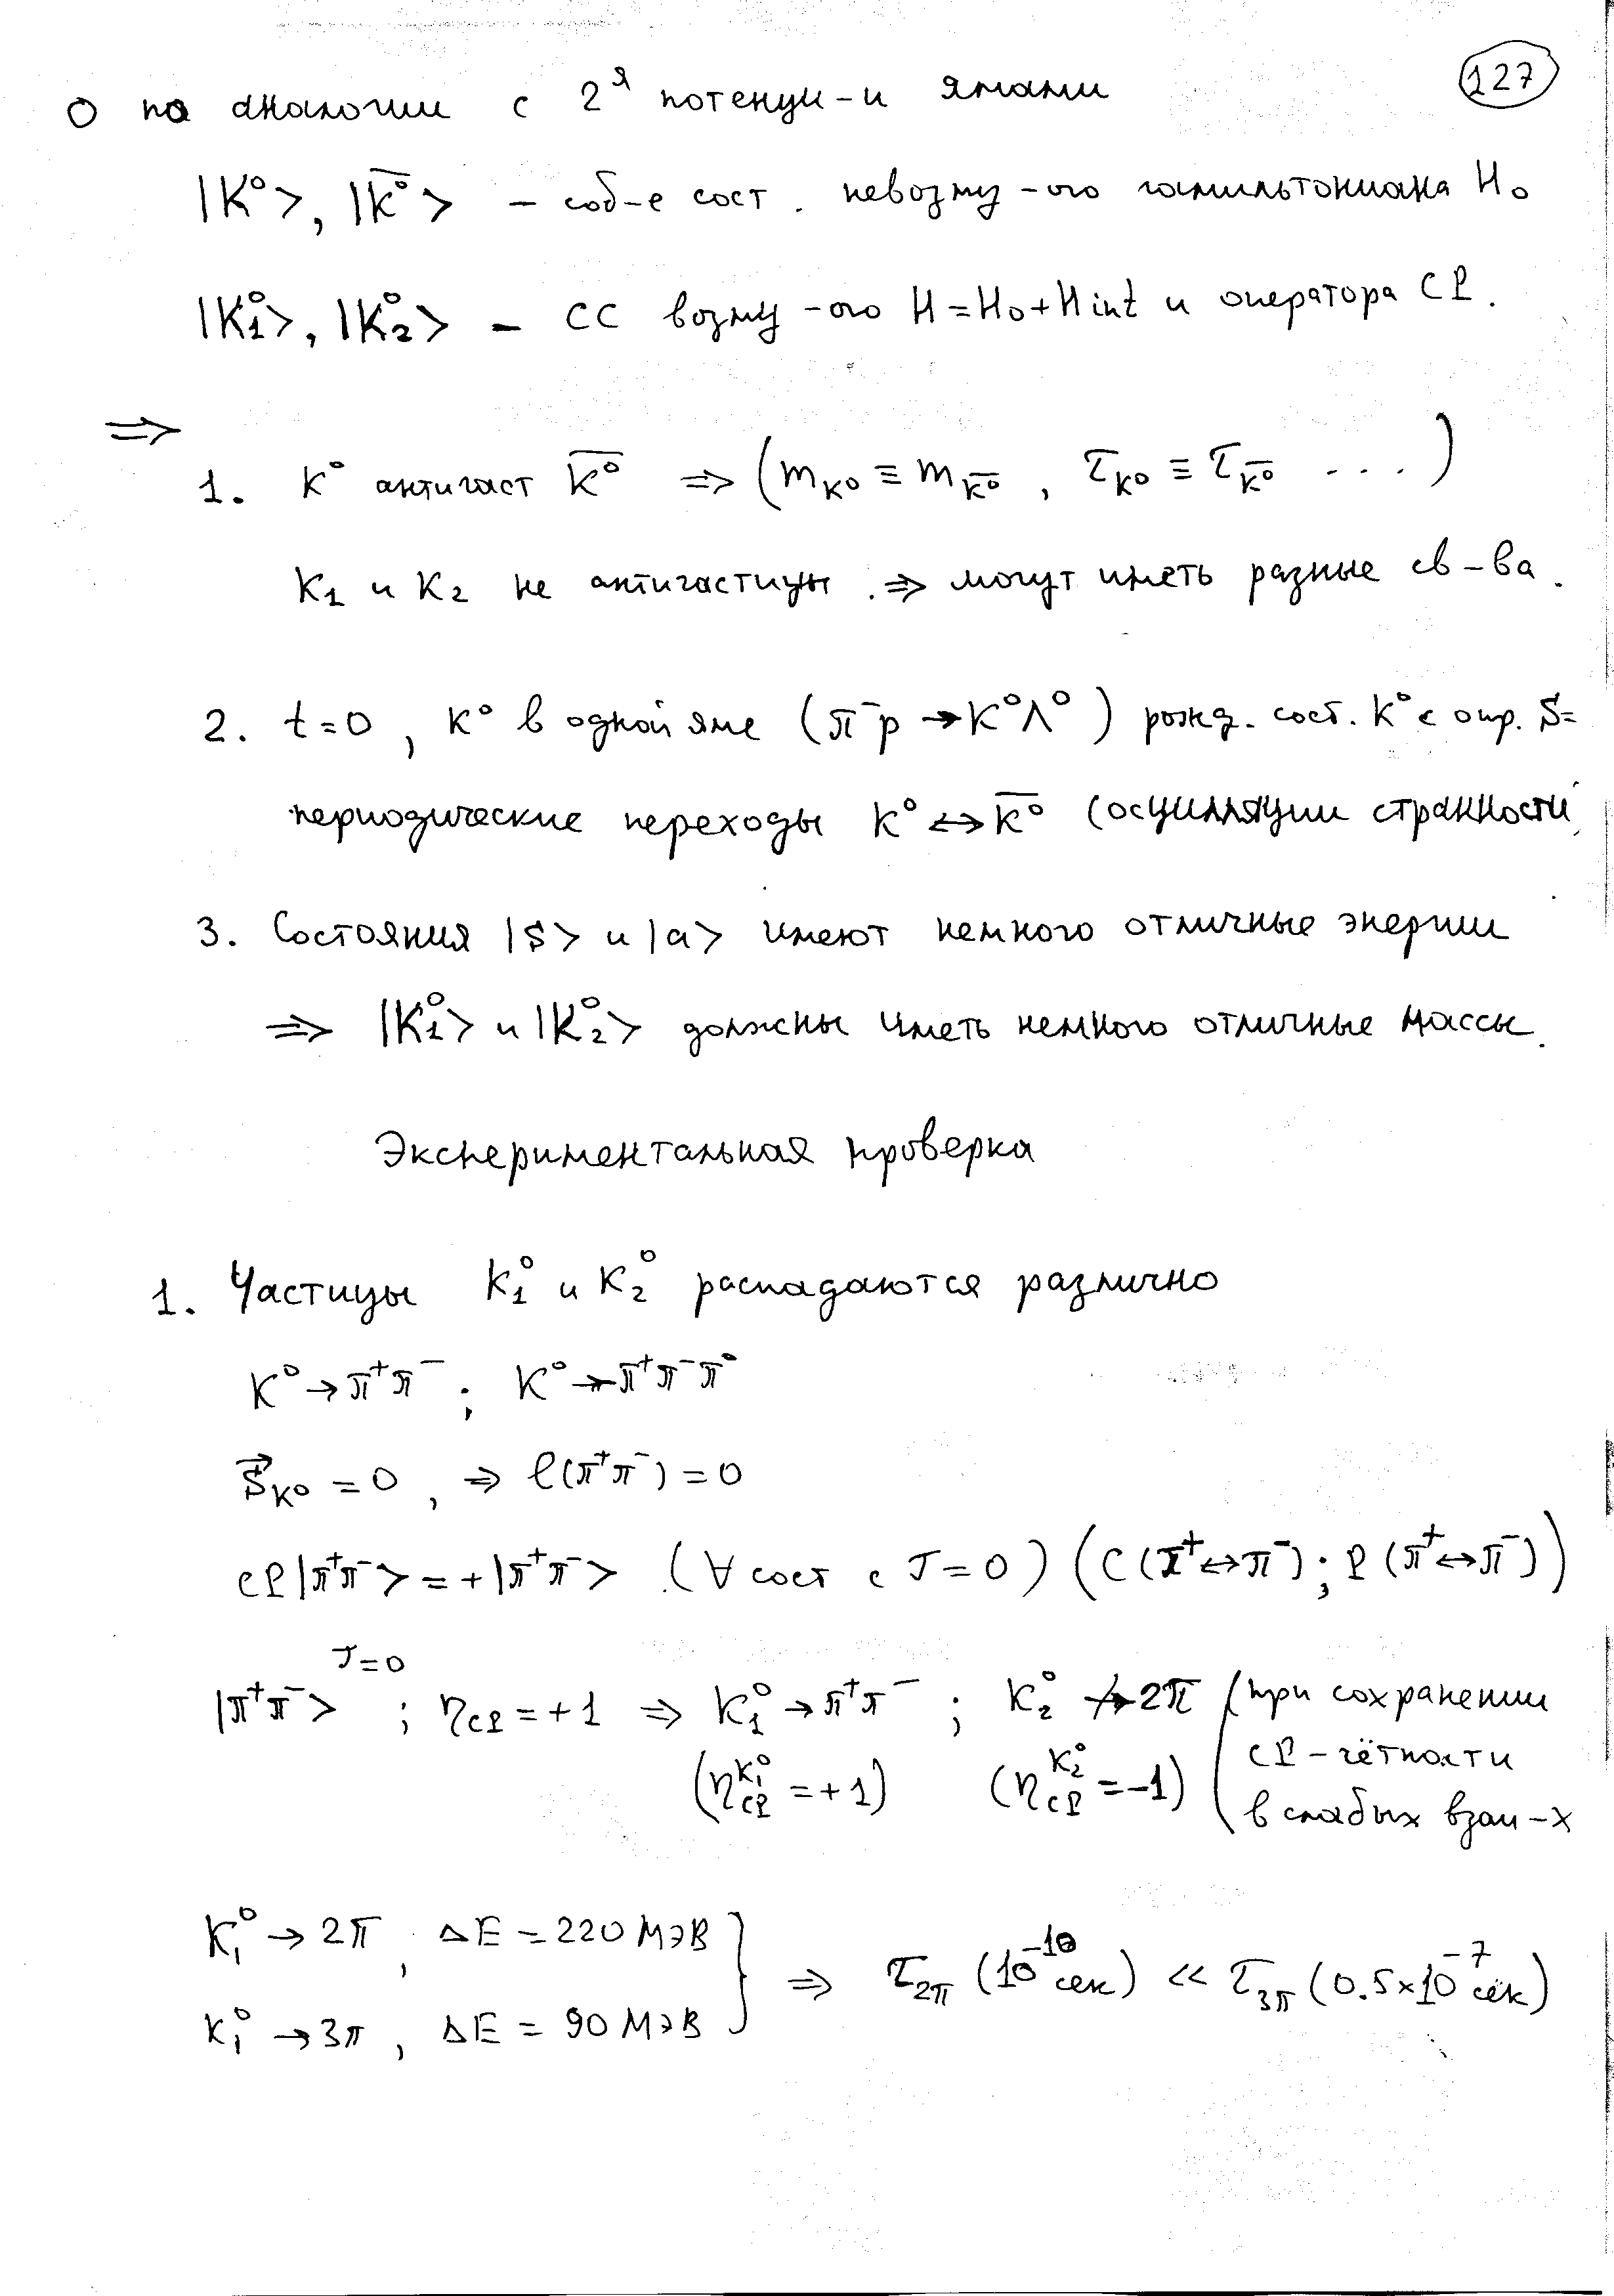 127
O по аналогии с 2я потенци-и ямами
|K⁰>, |K̅⁰> – соб-е сост. невозму-ого гамильтониана H₀
|K₁⁰>, |K₂⁰> – СС возму-ого H=H₀+Hint и оператора CP.
⇒
1. K⁰ античаст K̅⁰ ⇒ (m_K⁰ ≡ m_K̅⁰, τ_K⁰ ≡ τ_K̅⁰ ...)
K₁ и K₂ не античастицы ⇒ могут иметь разные св-ва.
2. t=0, K⁰ в одной яме (π⁻p → K⁰Λ⁰) рожд. сост. K⁰ с опр. S=
периодические переходы K⁰ ↔ K̅⁰ (осцилляции странности
3. Состояния |S> и |a> имеют немного отличные энергии
⇒ |K₁⁰> и |K₂⁰> должны иметь немного отличные массы.
Экспериментальная проверка
1. Частицы K₁⁰ и K₂⁰ распадаются различно
K⁰→π⁺π⁻; K⁰→π⁺π⁻π⁰
S⃗_K⁰ = 0, ⇒ ℓ(π⁺π⁻) = 0
CP|π⁺π⁻> = +|π⁺π⁻> (∀ сост с J=0) (C(π⁺↔π⁻); P(π⁺↔π⁻))
|π⁺π⁻>^J=0; η_CP = +1 ⇒ K₁⁰→π⁺π⁻; K₂⁰ ↛ 2π (при сохранении
(η_CP^K₁⁰ = +1) (η_CP^K₂⁰ = –1) CP-чётности
в слабых взаи-х
K₁⁰ → 2π, ΔE = 220 МэВ } ⇒ τ_2π (10⁻¹⁰ сек) << τ_3π (0.5×10⁻⁷ сек)
K₁⁰ → 3π, ΔE = 90 МэВ